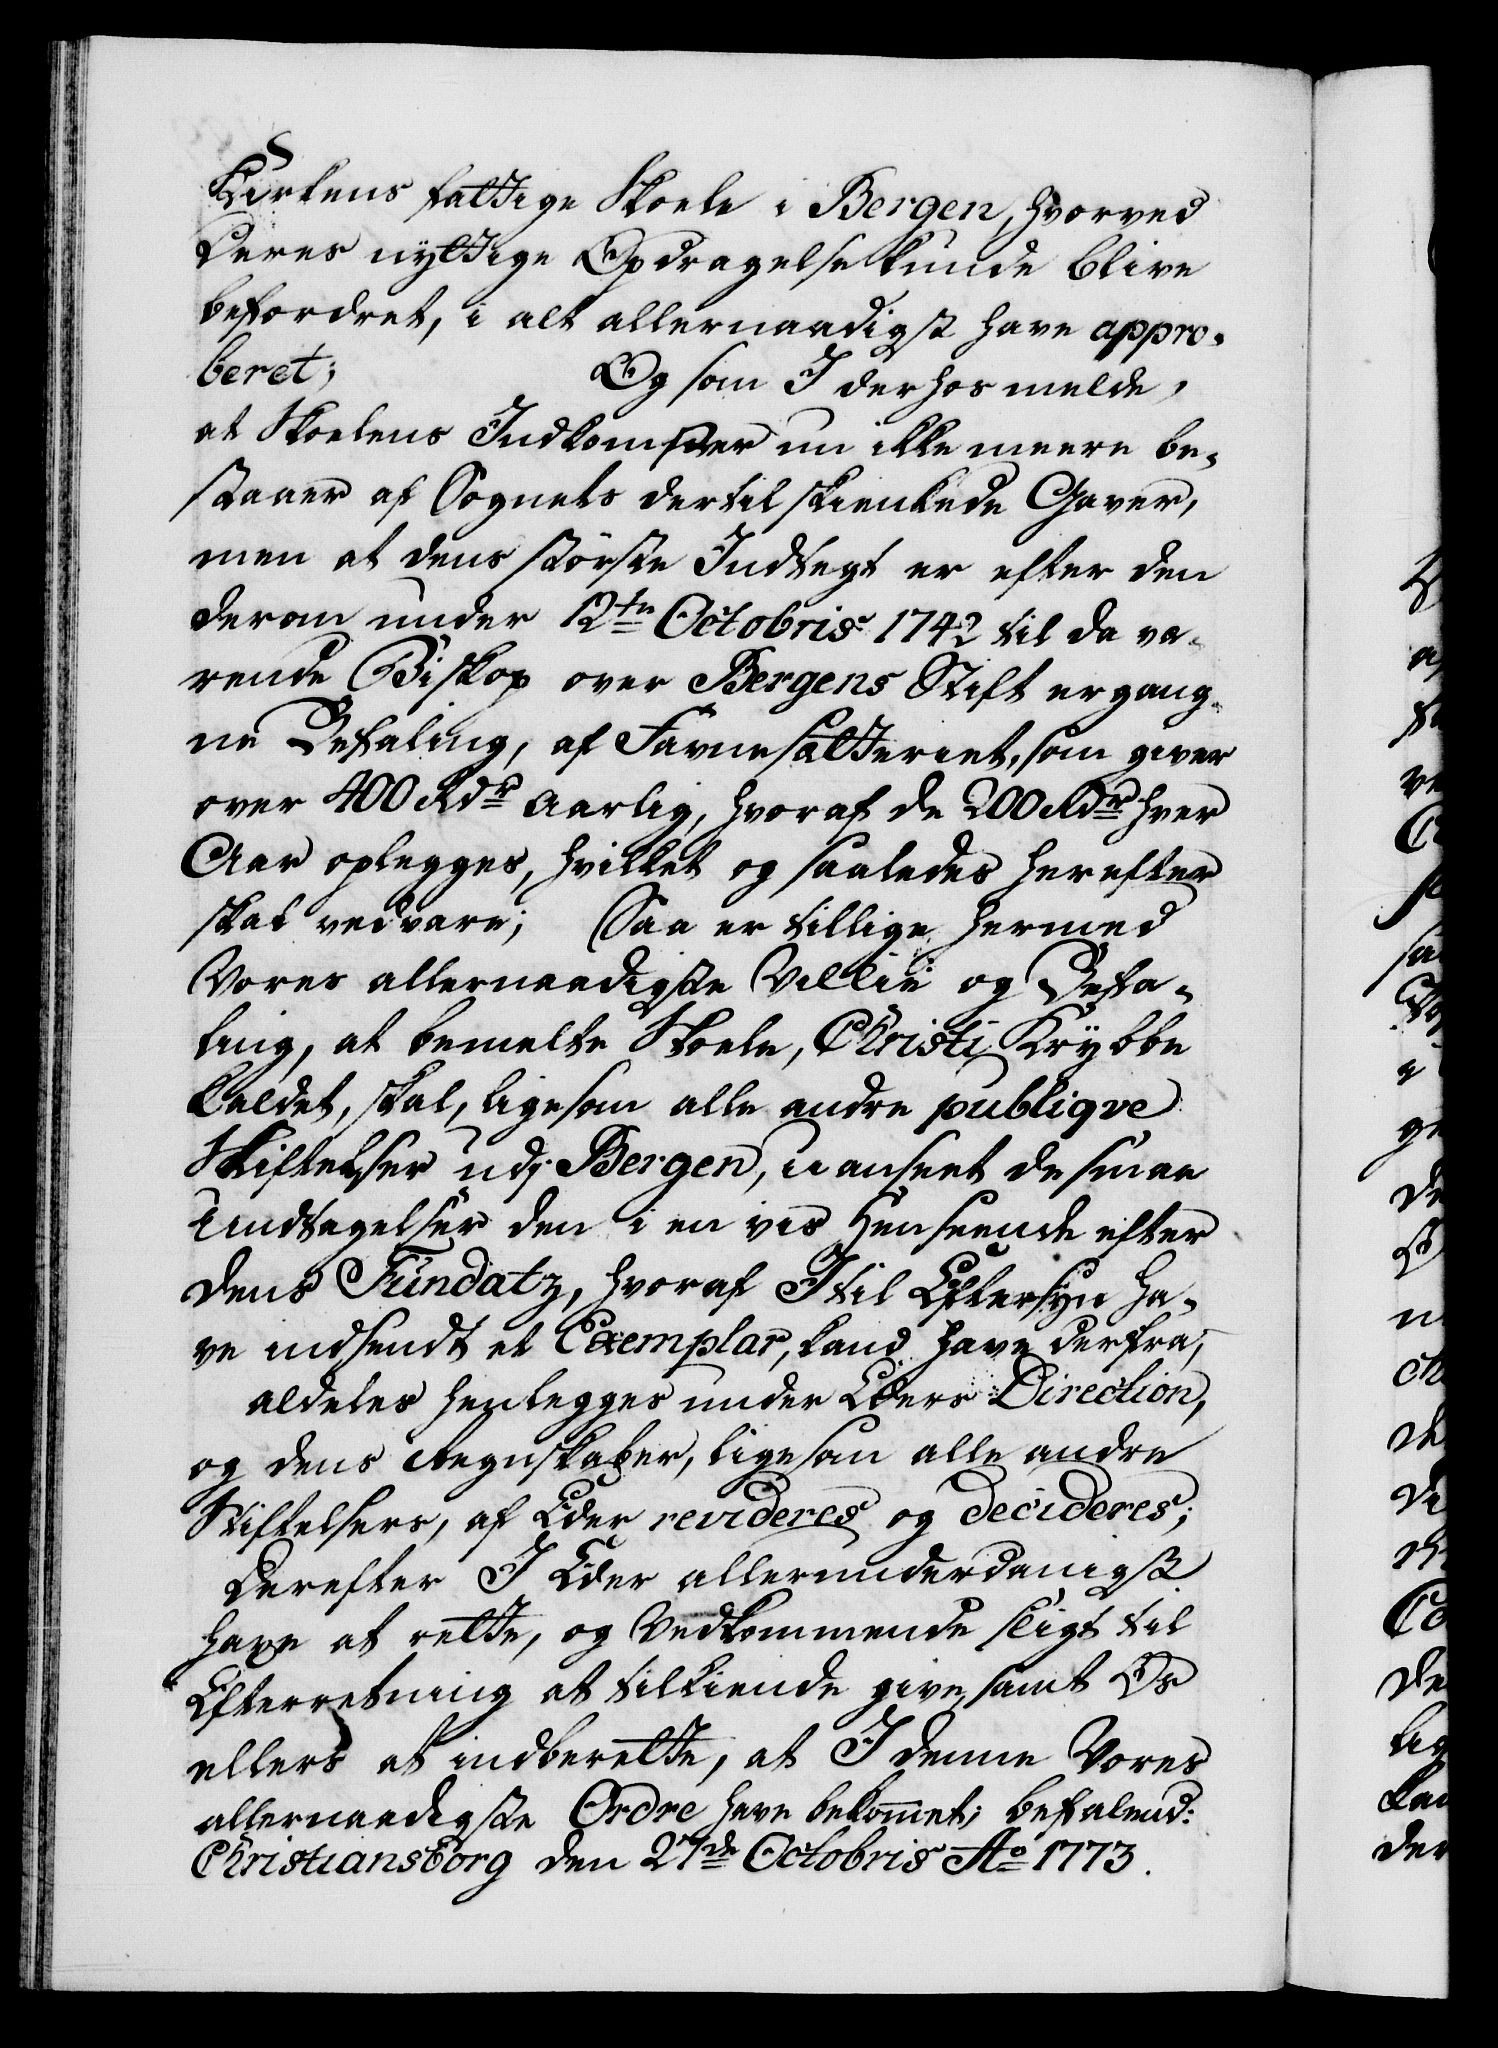 Kirkens fattige Skoele i Bergen, hvorved
deres nyttige Opdragelse kunde blive
befordret, i alt allernaadigst have appro-
beret; Og som I derhos melde,
at Skoelens Indkomster nu ikke meere be-
staaer af Sognets dertil skienkede Gaver,
men at dens største Indtegt er efter den
derom under 12te Octobris 1742 til da væ-
rende Biskop over Bergens Stift ergang-
ne Befaling, af Favnesætteriet, som giver
over 400 Rdr aarlig, hvoraf de 200 Rdr hver
Aar oplegges, hvilket og saaledes herefter
skal vedvare; Saa er tillige hermed
Vores allernaadigste Villie og Befa-
ling, at bemelte Skoele, Christi Krybbe
kaldet, skal, ligesom alle andre publiqve
Stiftelser udj Bergen, uanseet de smaa
Undtagelser den i en vis Henseende efter
dens Fundatz, hvoraf I til Eftersyn ha-
ve indsendt et Exemplar, kand have derfra,
aldeles henlegges under Eders Direction,
og dens Regnskaber, ligesom alle andre
Stiftelsers, af Eder revideres og decideres;
Derefter I Eder allerunderdanigst
have at rette, og Vedkommende sligt til
Efterretning at tilkiende give, samt Os
ellers at indberette, at I denne Vores
allernaadigste Ordre have bekommet; befalend:
Christiansborg den 27de Octobris Ao 1773.